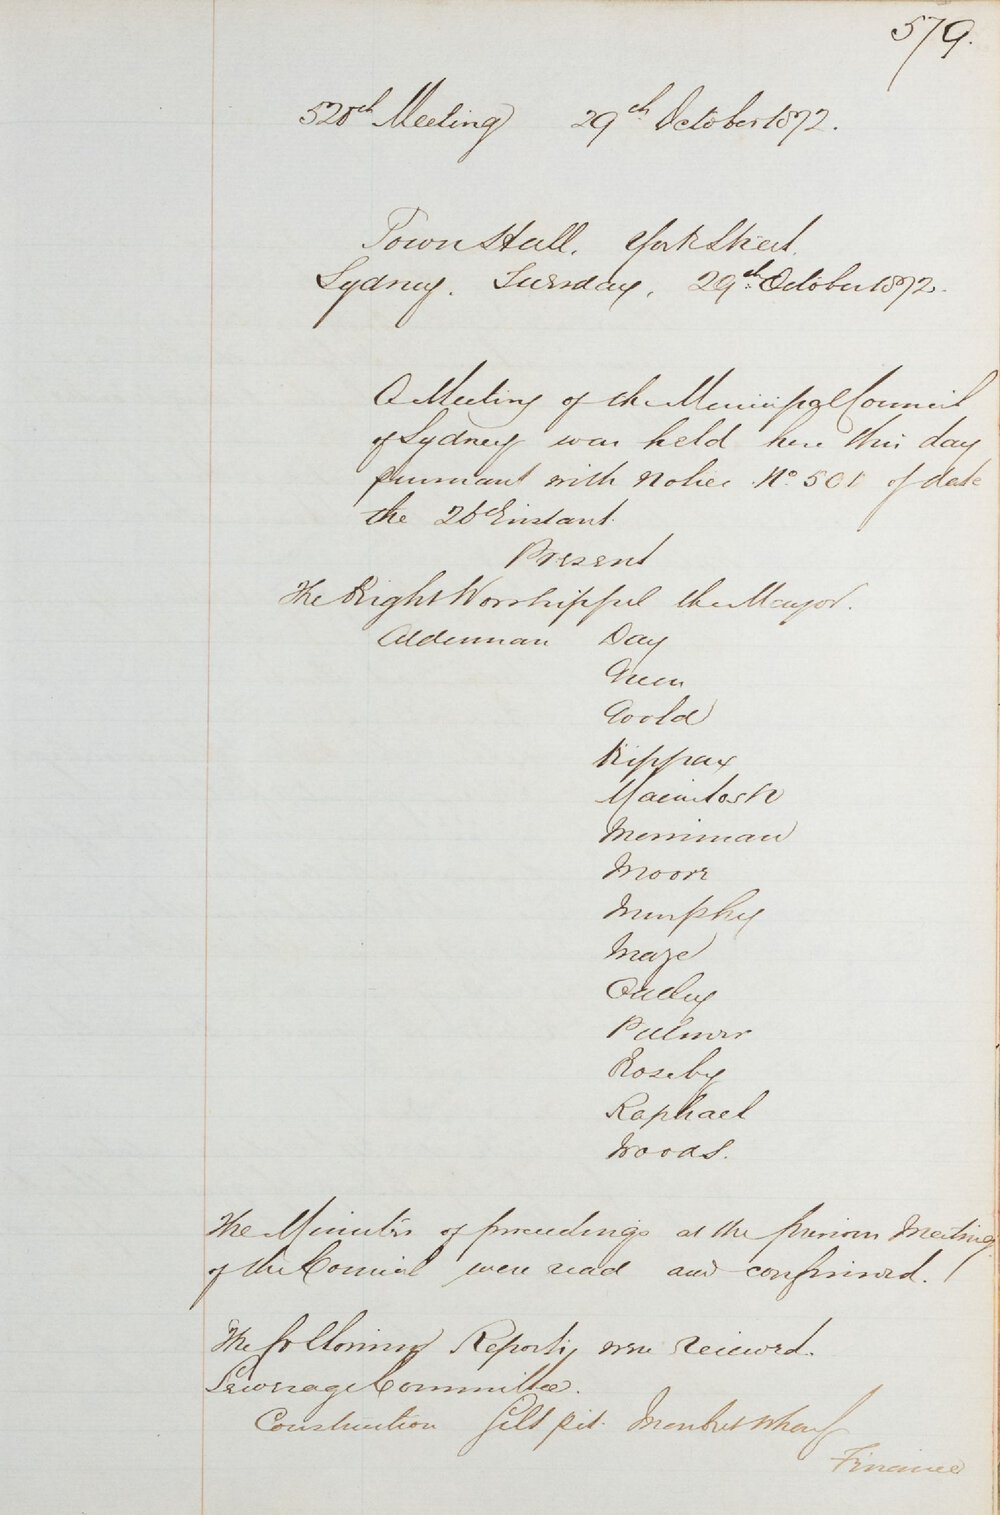 579.
528th Meeting 29th October 1872.
Town Hall. York Street.
Sydney. Tuesday, 29th October 1872.
A Meeting of the Municipal Council
of Sydney was held here this day
pursuant with notice No. 501 of date
the 26th Instant.
Present
The Right Worshipful the Mayor.
Alderman Day
Green
Goold
Kippax
Macintosh
Merriman
Moore
Murphy
Maze
Oatley
Palmer
Roseby
Raphael
Woods.
The Minutes of proceedings at the previous Meeting
of the Council were read and confirmed.
The following Reports were received.
Sewerage Committee.
Construction Silt pit. Wharf
Finance